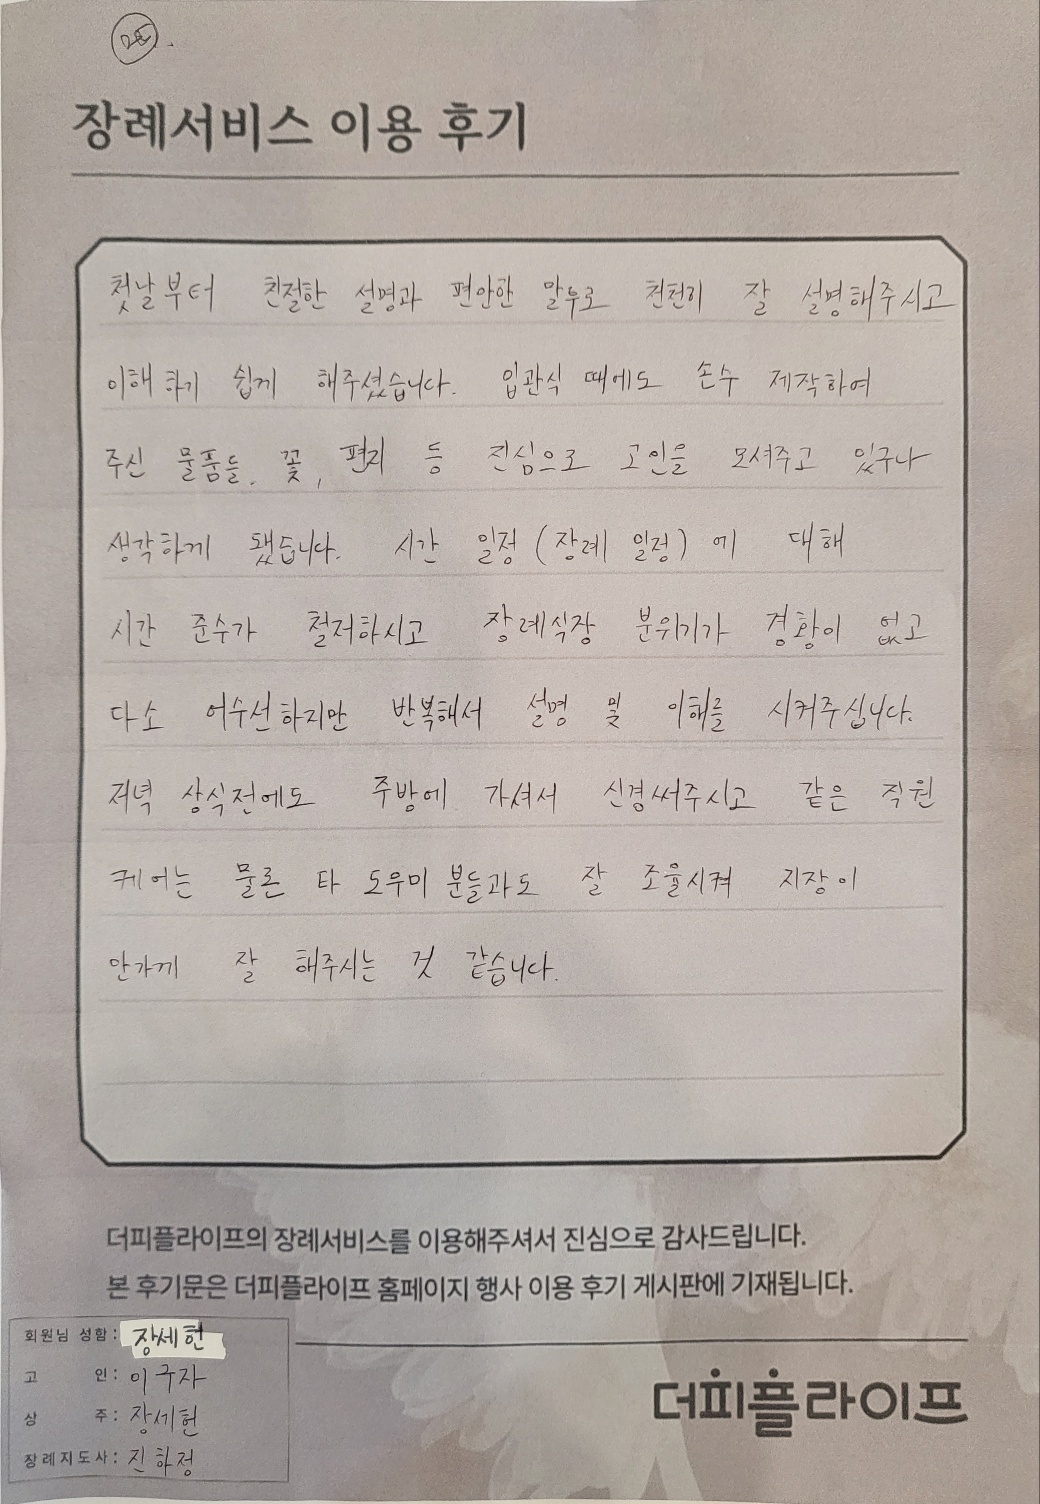 장례서비스 이용 후기
첫날부터 친절한 설명과 편안한 말누로 천천히 잘 설명해주시고
이해 하기 쉽게 해주셨습니다. 입관식 때에도 손수 제작하여
주신 물품들, 꽃, 편지 등 진심으로 고인을 모셔주고 있구나
생각하게 됐습니다. 시간 일정(장례 일정)에 대해
시간 준수가 철저하시고 장례식장 분위기가 경황이 없고
다소 어수선하지만 반복해서 설명 및 이해를 시켜주십니다.
저녁 상식전에도 주방에 가셔서 신경써주시고 같은 직원
케어는 물론 타 도우미 분들과도 잘 조율시켜 지장이
안가게 잘 해주시는 것 같습니다.
더피플라이프의 장례서비스를 이용해주셔서 진심으로 감사드립니다.
본 후기문은 더피플라이프 홈페이지 행사 이용 후기 게시판에 기재됩니다.
회원님 성함: 장세헌
고 인: 이구자
상 주: 장세헌
장례지도사: 진하정
더피플라이프